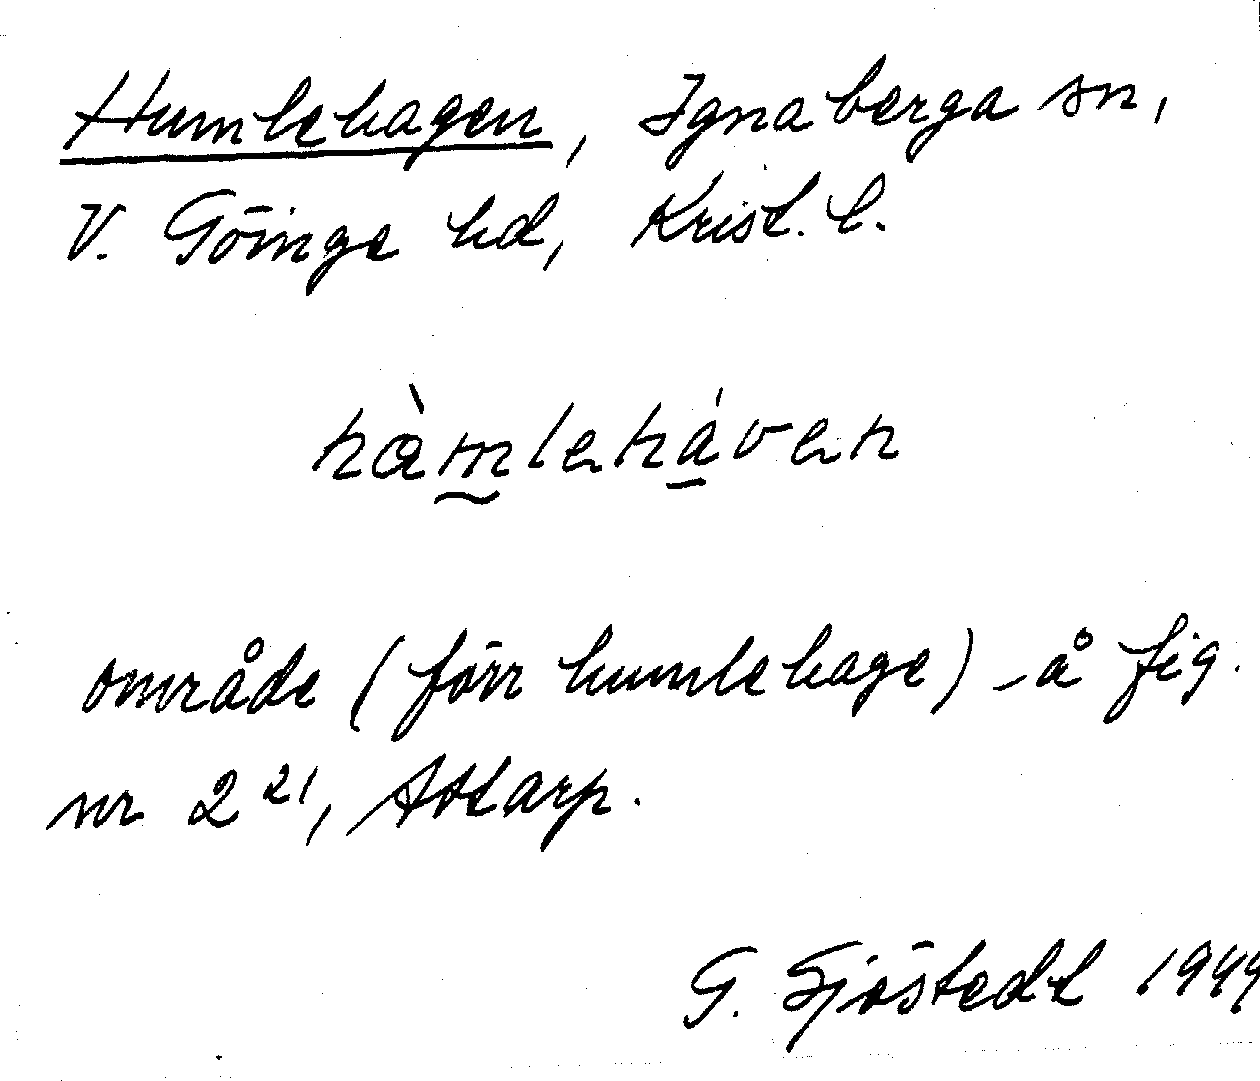 Humlehagen, Ignaberga sn,
V. Göinge hd, Krist. l.
hàmleháven
område (förr humlehage) på fig.
nr 2 21, Attarp.
G. Sjöstedt 1949